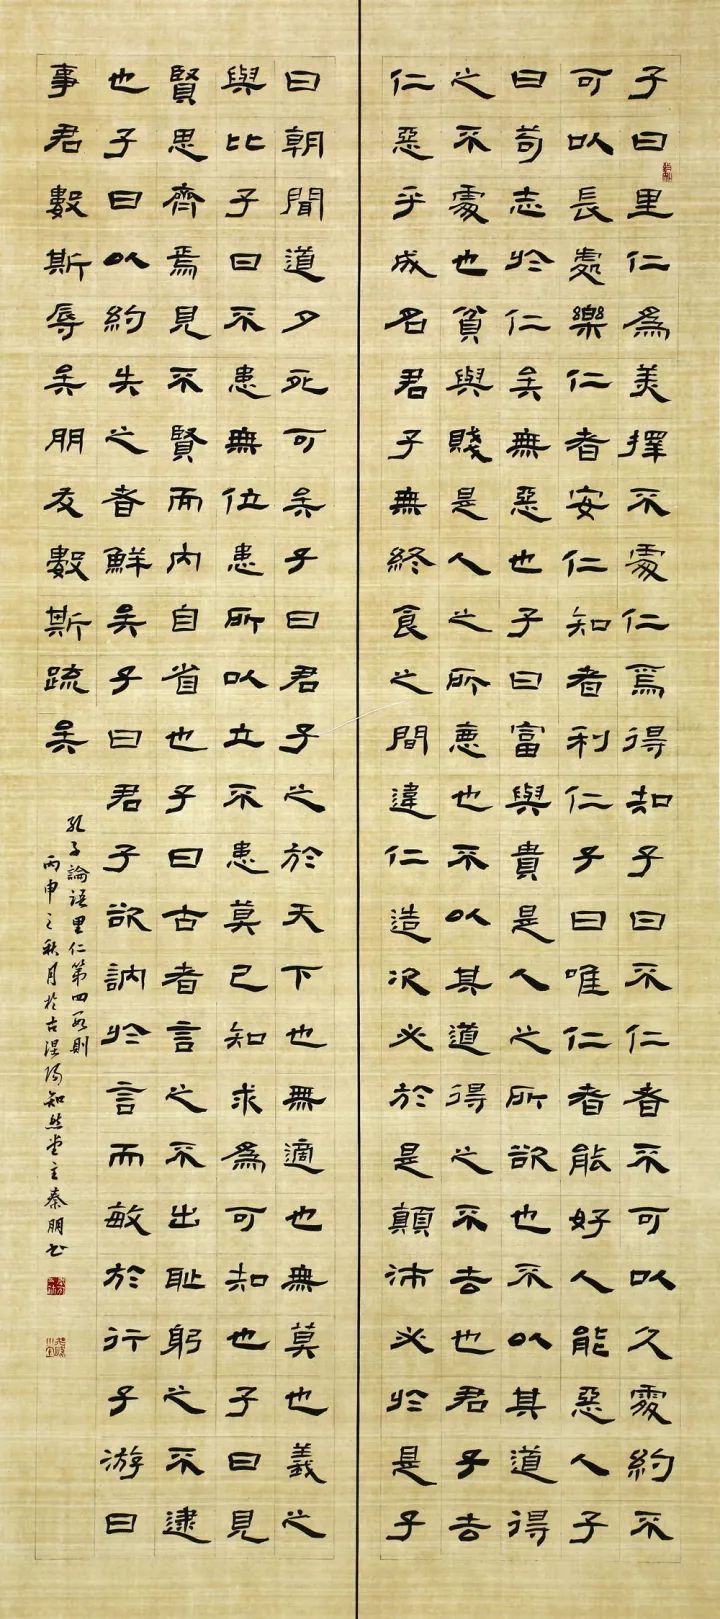 子曰里仁爲美擇不處仁焉得知子曰不仁者不可以久處約不
可以長處樂仁者安仁知者利仁子曰唯仁者能好人能惡人子
曰苟志於仁矣無惡也子曰富與貴是人之所欲也不以其道得
之不處也貧與賤是人之所惡也不以其道得之不去也君子去
仁惡乎成名君子無終食之間違仁造次必於是顛沛必於是子
曰朝聞道夕死可矣子曰君子之於天下也無適也無莫也義之
與比子曰不患無位患所以立不患莫己知求爲可知也子曰見
賢思齊焉見不賢而內自省也子曰古者言之不出恥躬之不逮
也子曰以約失之者鮮矣子曰君子欲訥於言而敏於行子游曰
事君數斯辱矣朋友數斯疏矣
孔子論語里仁第四則
丙申之秋月於古涅陽知然堂主秦朋書